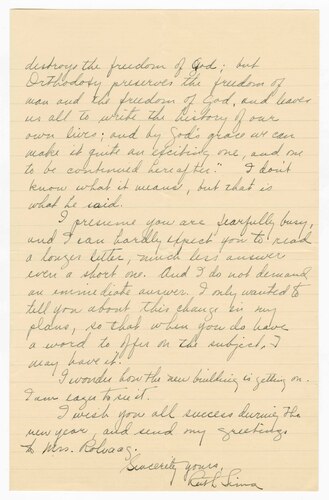 destroys the freedom of God; but
Orthodoxy preserves the freedom of
man and the freedom of God, and leaves
us all to write the history of our
own lives; and by God's grace we can
make it quite an exciting one, and one
to be continued hereafter." I don't
know what it means, but that is
what he said.
I presume you are fearfully busy,
and I can hardly expect you to read
a longer letter, much less answer
even a short one. And I do not demand
an immediate answer. I only wanted to
tell you about this change in my
plans, so that when you do have
a word to offer on the subject, I
may have it.
I wonder how the new building is getting on.
I am eager to see it.
I wish you all success during the
new year, and send my greetings
to Mrs. Rolvaag.
Sincerely yours,
Ruth